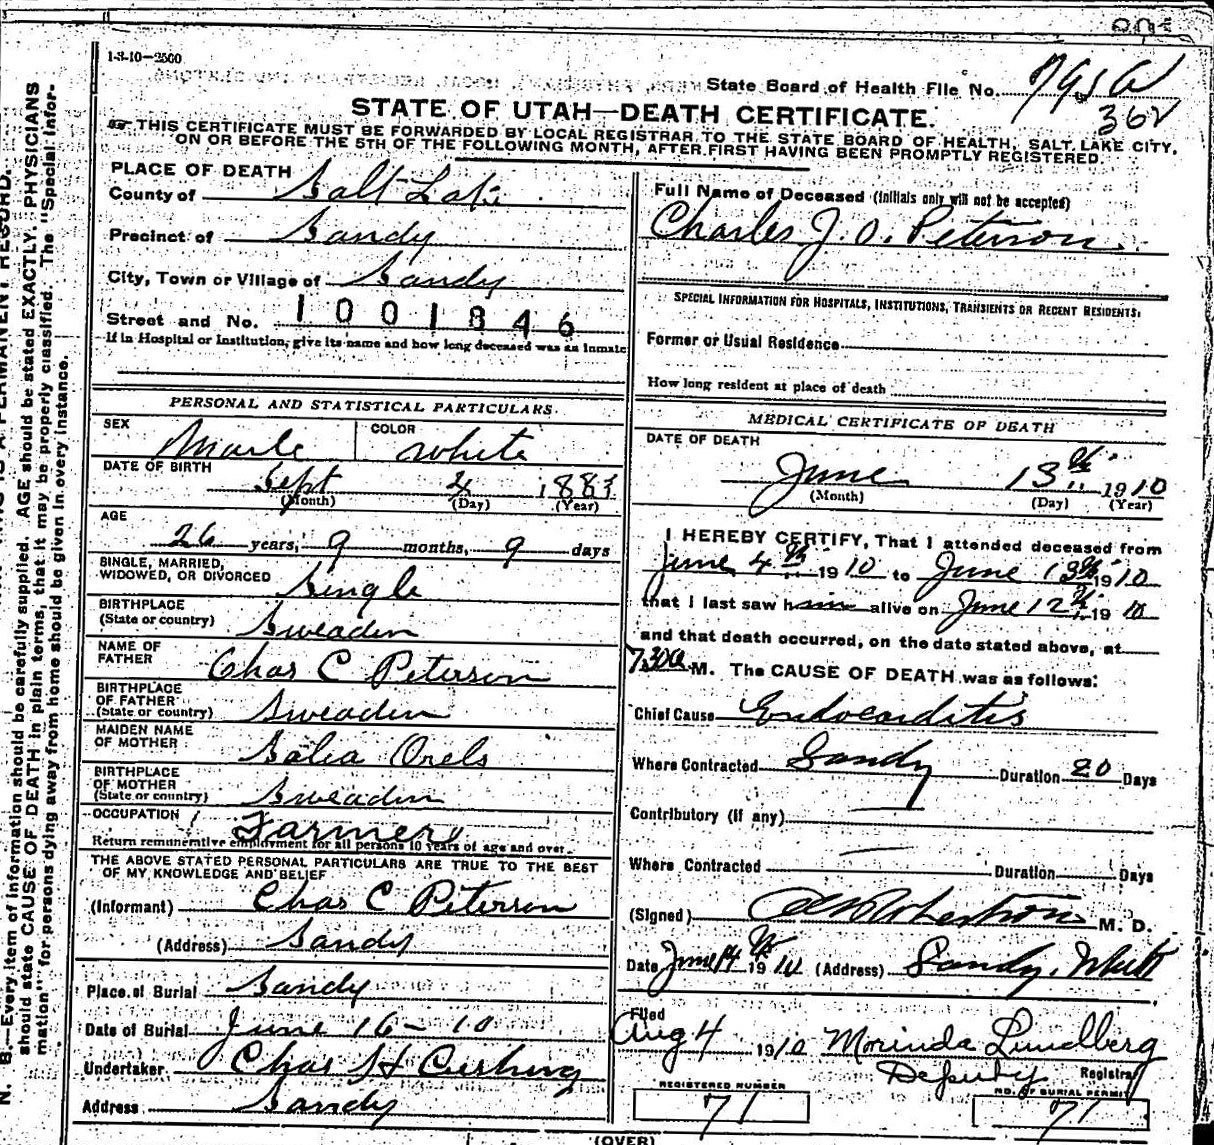 1-3-10-2500
State Board of Health File No.
362
STATE OF UTAH—DEATH CERTIFICATE.
THIS CERTIFICATE MUST BE FORWARDED BY LOCAL REGISTRAR TO THE STATE BOARD OF HEALTH, SALT LAKE CITY,
ON OR BEFORE THE 5TH OF THE FOLLOWING MONTH, AFTER FIRST HAVING BEEN PROMPTLY REGISTERED.
PLACE OF DEATH
County of Salt Lake
Precinct of Sandy
City, Town or Village of Sandy
1001846
Street and No.
If in Hospital or Institution, give its name and how long deceased was an inmate
PERSONAL AND STATISTICAL PARTICULARS
SEX Male COLOR White
DATE OF BIRTH
Sept 4 1883
(Month) (Day) (Year)
AGE
26 years, 9 months, 9 days
SINGLE, MARRIED,
WIDOWED, OR DIVORCED Single
BIRTHPLACE
(State or country) Sweaden
NAME OF
FATHER Chas C Peterson
BIRTHPLACE
OF FATHER
(State or country) Sweaden
MAIDEN NAME
OF MOTHER Orels
BIRTHPLACE
OF MOTHER
(State or country) Sweaden
OCCUPATION Farmer
Return remunerative employment for all persons 10 years of age and over.
THE ABOVE STATED PERSONAL PARTICULARS ARE TRUE TO THE BEST
OF MY KNOWLEDGE AND BELIEF
(Informant) Chas C Peterson
(Address) Sandy
Place of Burial Sandy
Date of Burial June 16-10
Undertaker Chas H Cushing
Address Sandy
Full Name of Deceased (Initials only will not be accepted)
Charles J. O. Peterson
SPECIAL INFORMATION FOR HOSPITALS, INSTITUTIONS, TRANSIENTS OR RECENT RESIDENTS:
Former or Usual Residence
How long resident at place of death
MEDICAL CERTIFICATE OF DEATH
DATE OF DEATH
June 13th 1910
(Month) (Day) (Year)
I HEREBY CERTIFY, That I attended deceased from
June 4th 1910 to June 13th 1910
that I last saw him alive on June 12th 1910
and that death occurred, on the date stated above, at
7.30a M. The CAUSE OF DEATH was as follows:
Chief Cause Endocarditis
Where Contracted Sandy Duration 20 Days
Contributory (if any)
Where Contracted Duration Days
(Signed) Robertson M. D.
Date June 14th 1910 (Address) Sandy, Utah
Filed
Aug 4 1910 Morinda Lundberg
Deputy Registrar
REGISTERED NUMBER
71
NO. OF BURIAL PERMIT
71
(OVER)
N. B.—Every item of information should be carefully supplied. AGE should be stated EXACTLY. PHYSICIANS
should state CAUSE OF DEATH in plain terms, that it may be properly classified. The "Special Infor-
mation" for persons dying away from home should be given in every instance.